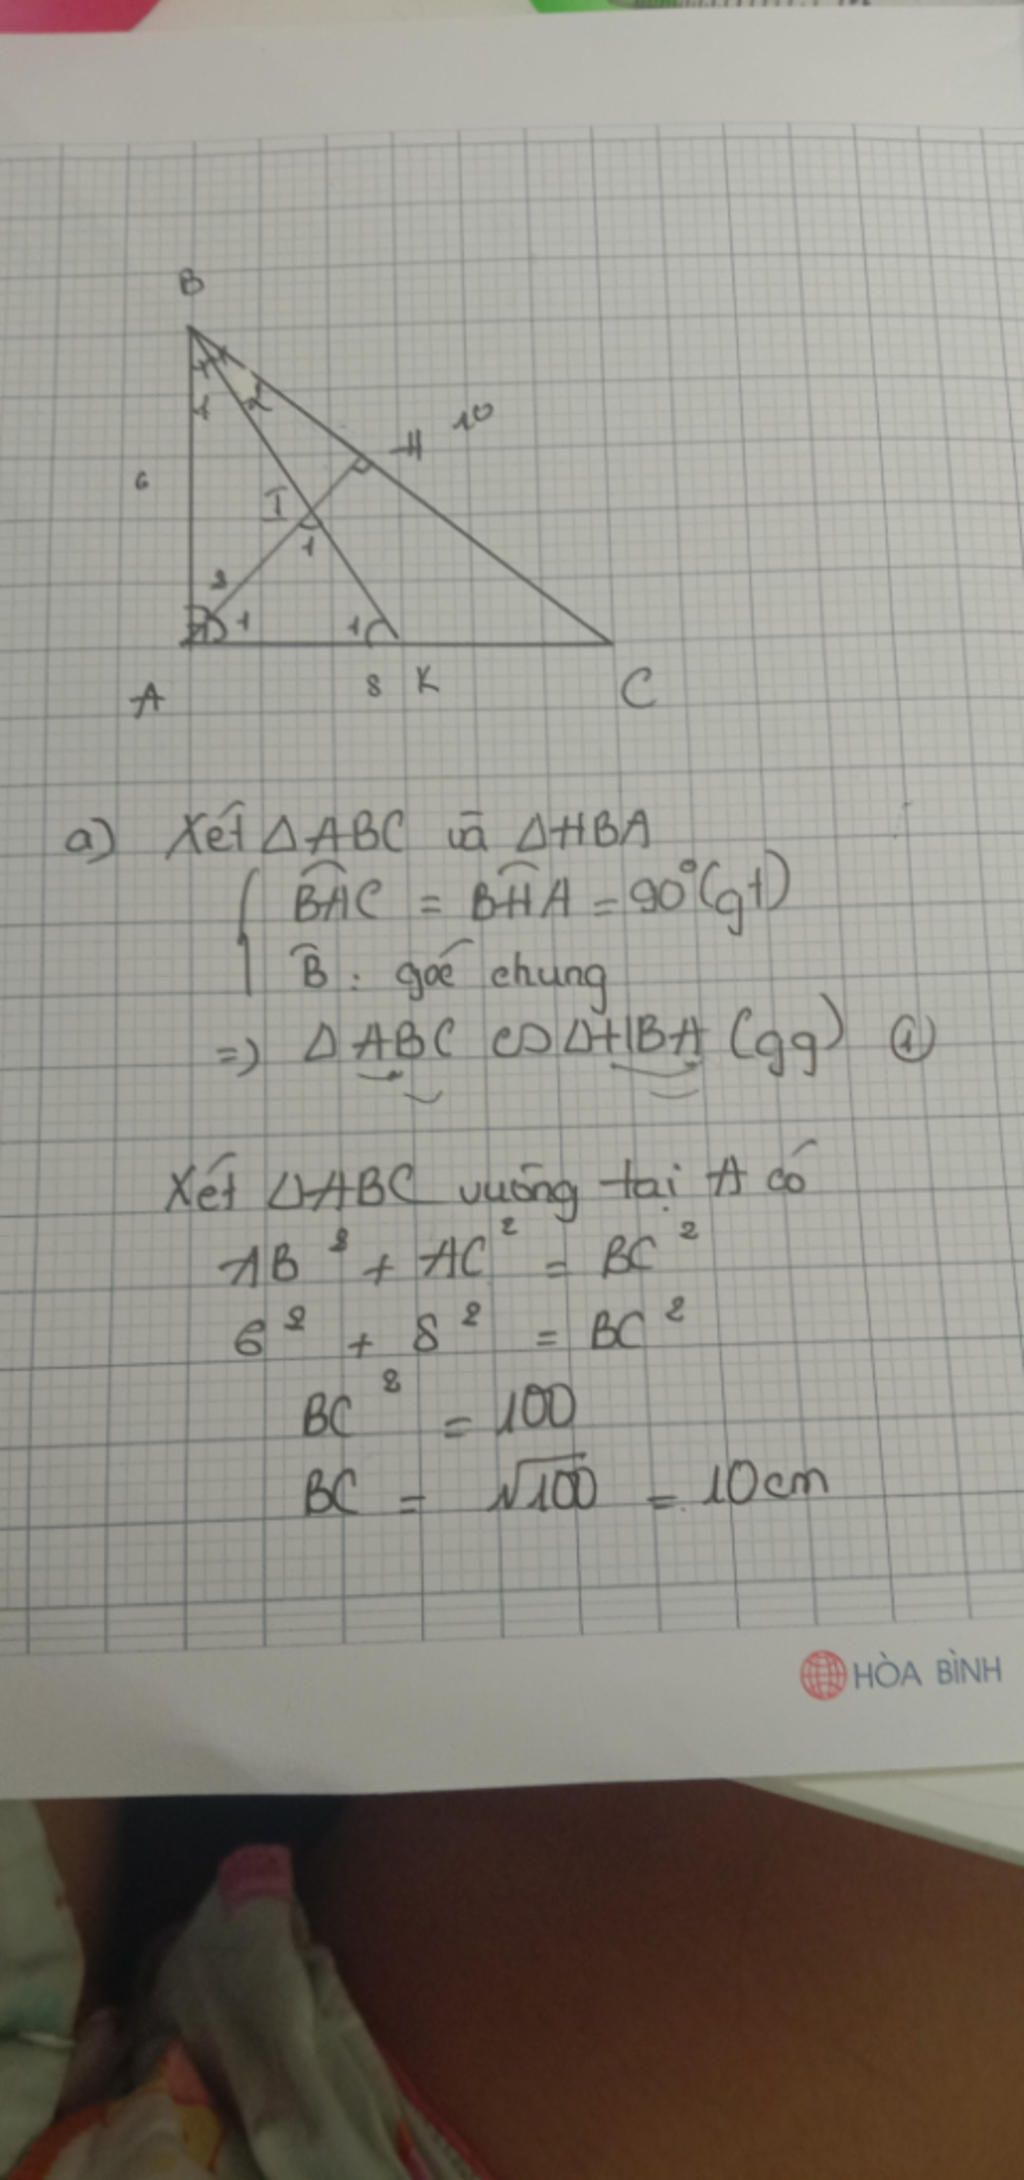 B
1
2
6
H
10
I
1
2
1
1
A
8
K
C
a) Xét ΔABC và ΔHBA
{ BAC = BHA = 90° (gt)
B̂ : góc chung
=> ΔABC ∽ ΔHBA (gg) ①
Xét ΔABC vuông tại A có
AB² + AC² = BC²
6² + 8² = BC²
BC² = 100
BC = √100 = 10cm
HÒA BÌNH